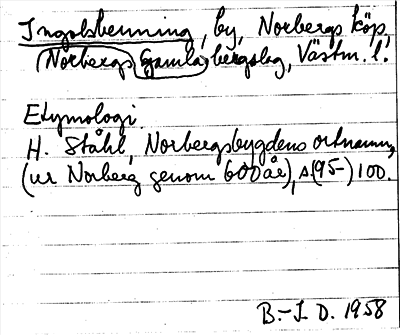 Ingolsbenning, by, Norbergs köp.
Norbergs Gamla bergslag, Västm. l.
Etymologi.
H. Ståhl, Norbergsbygdens ortnamn,
(ur Norberg genom 600 år), s. (95-) 100.
B.-I. D. 1958